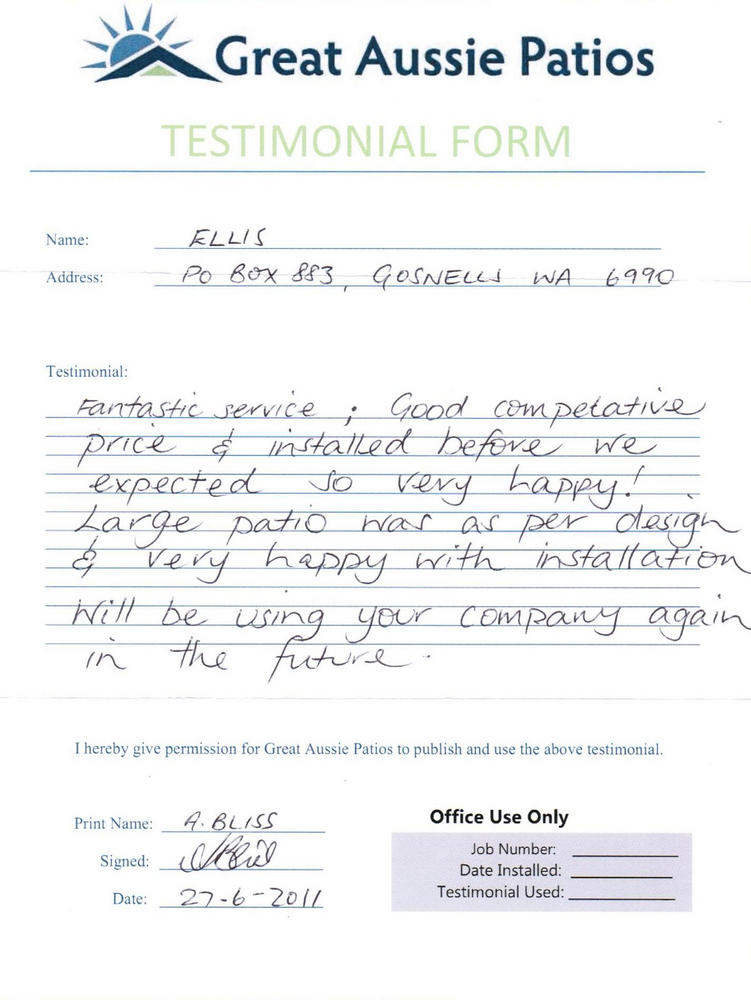 Great Aussie Patios
TESTIMONIAL FORM
Name: ELLIS
Address: PO BOX 883, GOSNELLS WA 6990
Testimonial:
Fantastic service; Good competative
price & installed before we
expected so very happy!
Large patio was as per design
& very happy with installation
Will be using your company again
in the future.
I hereby give permission for Great Aussie Patios to publish and use the above testimonial.
Print Name: A. BLISS
Signed:
Date: 27-6-2011
Office Use Only
Job Number:
Date Installed:
Testimonial Used: